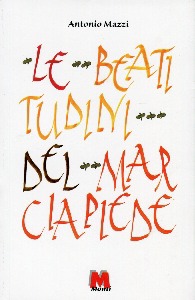 Antonio Mazzi
LE BEATI
TUDINI
DEL MAR
CIAPIEDE
M
Monti